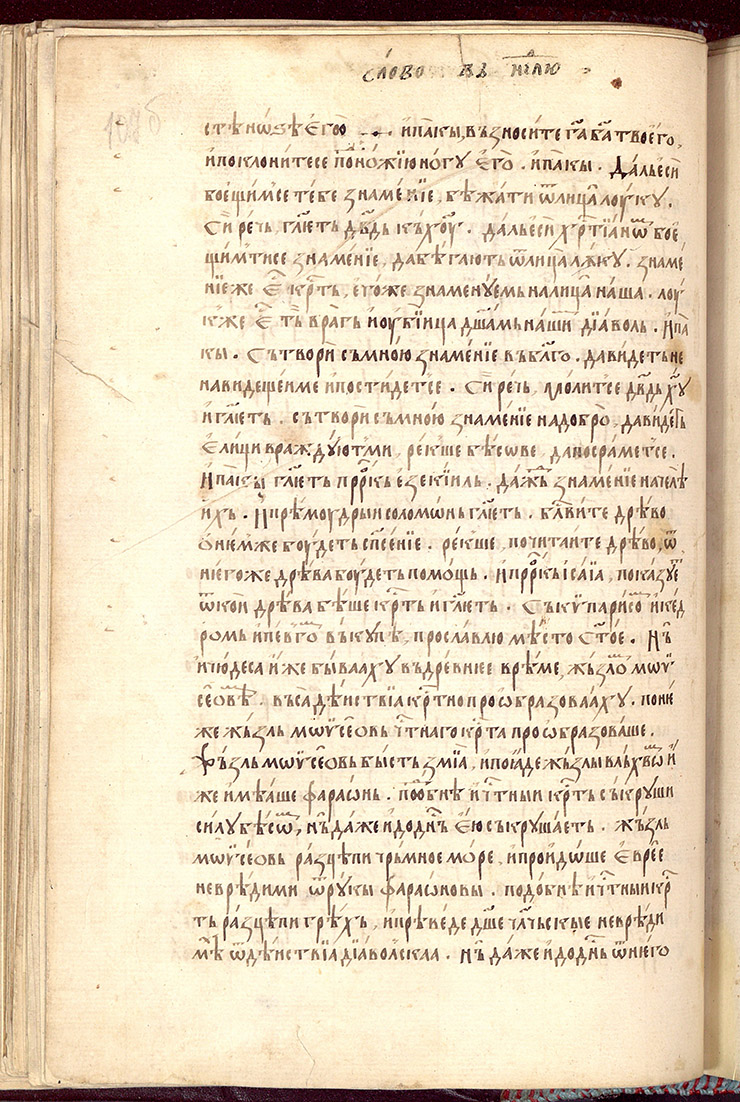 сло́во въ нєⷣлю
стѣ нѡѕѣ єго̀ · и҆ па́кы, възноси́те га҃ ба҃ твоего̀,
и поклони́тесе поⷣно́жїю но́гу єго̀ . и҆ па́кы . Да́ль єсѝ
боє́щимсе тебе зна́менїе, бѣжа́ти ѿ лица̀ лоу́ку .
Си рѣчь, гл҃єть дв҃дь къ хоу҃ . да́ль єсѝ хрⷭ҇тїа́нѡⷨ боє́
щимтисе зна́менїе, да бѣ́гають ѿ лица̀ лѫ́ку . зна́ме
нїе же є҆ⷭ҇ крⷭ҇ть, єго́же зна́менуємь на лица̀ на́ша . лоу́
к же є҆ⷭ҇ ть вра́гь и оубїи́ца дш҃а́мь на́шиⷨ дїа́воль . И҆ па́
кы . Сътворѝ съ мно́ю зна́менїе въ бл҃го . да видеть не
навидещеи ме и постиде́тсе . Си рѣчь, мо́литсе дв҃дь хоу҃
и гл҃єть . сътворѝ съ мно́ю зна́менїе на добро̀, да видеⷮть
є҆ли́ци вражду́ют ми, ре́кше бѣ́сове, да посра́метсе .
И҆ па́кы гл҃єть прⷪ҇ркь є҆зекїи́ль . да́жⷣь зна́менїе на челѣ̀
и҆хь . И҆ прѣмоу́дрыи соломѡ́нь гл҃єть . бл҃ви́те дрѣ́во
ѡ҆ нѥ́мже боу́деть спⷭ҇е́нїе . ре́кше, почита́ите дрѣ́во, ѿ
нѥго́же дрѣ́ва боу́деть по́мощь . и҆ прⷪ҇ркь і҆са́їа, пока́зуєⷮ
ѿ кои̑ дрѣ́ва бѣ́ше крⷭ҇ть и гл҃єть . Съ кѷпари́соⷨ и ке́д
ромь и пе́вгоⷨ въку́пѣ, просла́влю мѣ́сто ст҃ое . Нь
и чюдеса̀ и҆же быва́аху въ дре́внѥе врѣ́ме, жьзлоⷨ мѡѷ
сеѡвѣⷨ . въса дѣ́иствїа крⷭ҇тно проѡ҆бразова́аху . поне́
же жь́зль мѡѷсе́ѡвь чⷭ҇тнаго крⷭ҇та проѡ҆бразова́ше .
Жь́зль мѡѷсе́ѡвь бысть зми́а, и поіа́де жьзлы̀ влъ́хвѡⷨ и҆
же имѣ́аше фарасѡ́нь . поⷣо́бнѣ и чⷭ҇тныи крⷭ҇ть съкрушѝ
си́лу бѣ́сѡⷨ, нь да́же и до дн҃ь єю̀ съкруша́єть . жь́зль
мѡѷсе́овь разцѣпѝ чрь́мноє мо́ре, и проидо́ше є҆вре́є
неврѣ́дими ѿ ру́кы фараѡ́новы . подо́бнѣ и чⷭ҇тныи крⷭ҇
ть разцѣпѝ грѣ́хь, и прѣве́де дш҃е чл҃чьскыє неврѣ́ди
мѣ ѿ дѣ́иствїа дїа́волскаа . нь да́же и до дн҃ь ѿ нѥго̀